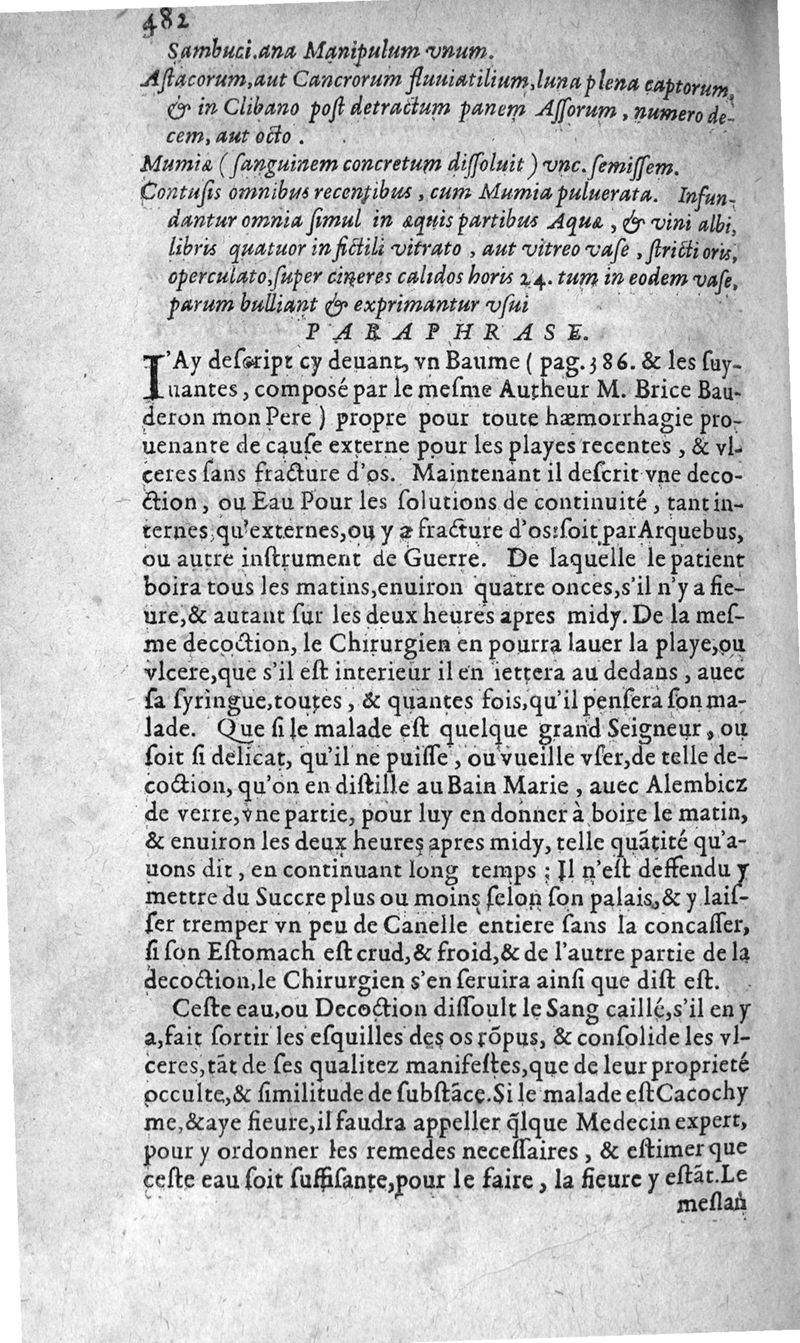 482
Sambuci.ana Manipulum vnum.
Aſtacorum,aut Cancrorum fluuiatilium,luna plena captorum,
& in Clibano poſt detractum panem Aſſorum, numero de-
cem, aut octo.
Mumiæ (ſanguinem concretum diſſoluit) vnc. ſemiſſem.
Contuſis omnibus recentibus, cum Mumia puluerata. Infun-
dantur omnia ſimul in æquis partibus Aquæ, & vini albi,
libris quatuor in fictili vitrato, aut vitreo vaſe, ſtricti oris,
operculato,ſuper cineres calidos horis 24. tum in eodem vaſe,
parum bulliant & exprimantur vſui
PARAPHRASE.
I'Ay deſcript cy deuant, vn Baume (pag.386. & les ſuy-
uantes, compoſé par le meſme Autheur M. Brice Bau-
deron mon Pere) propre pour toute hæmorrhagie pro-
uenante de cauſe externe pour les playes recentes, & vl-
ceres ſans fracture d'os. Maintenant il deſcrit vne deco-
ction, ou Eau Pour les ſolutions de continuité, tant in-
ternes,qu'externes,ou y a fracture d'os:ſoit par Arquebus,
ou autre inſtrument de Guerre. De laquelle le patient
boira tous les matins,enuiron quatre onces,s'il n'y a fie-
ure,& autant ſur les deux heures apres midy. De la meſ-
me decoction, le Chirurgien en pourra lauer la playe,ou
vlcere,que s'il eſt interieur il en iettera au dedans, auec
ſa ſyringue,toutes, & quantes fois,qu'il penſera ſon ma-
lade. Que ſi le malade eſt quelque grand Seigneur, ou
ſoit ſi delicat, qu'il ne puiſſe, ou vueille vſer,de telle de-
coction, qu'on en diſtille au Bain Marie, auec Alembicz
de verre,vne partie, pour luy en donner à boire le matin,
& enuiron les deux heures apres midy, telle quãtité qu'a-
uons dit, en continuant long temps; Il n'eſt deffendu y
mettre du Succre plus ou moins ſelon ſon palais,& y laiſ-
ſer tremper vn peu de Canelle entiere ſans la concaſſer,
ſi ſon Eſtomach eſt crud,& froid,& de l'autre partie de la
decoction,le Chirurgien s'en ſeruira ainſi que diſt eſt.
Ceſte eau,ou Decoction diſſoult le Sang caillé,s'il en y
a,fait ſortir les eſquilles des os rõpus, & conſolide les vl-
ceres,tãt de ſes qualitez manifeſtes,que de leur proprieté
occulte,& ſimilitude de ſubſtãce.Si le malade eſt Cacochy
me,& aye fieure,il faudra appeller q̃lque Medecin expert,
pour y ordonner les remedes neceſſaires, & eſtimer que
ceſte eau ſoit ſuffiſante,pour le faire, la fieure y eſtãt.Le
meſlan